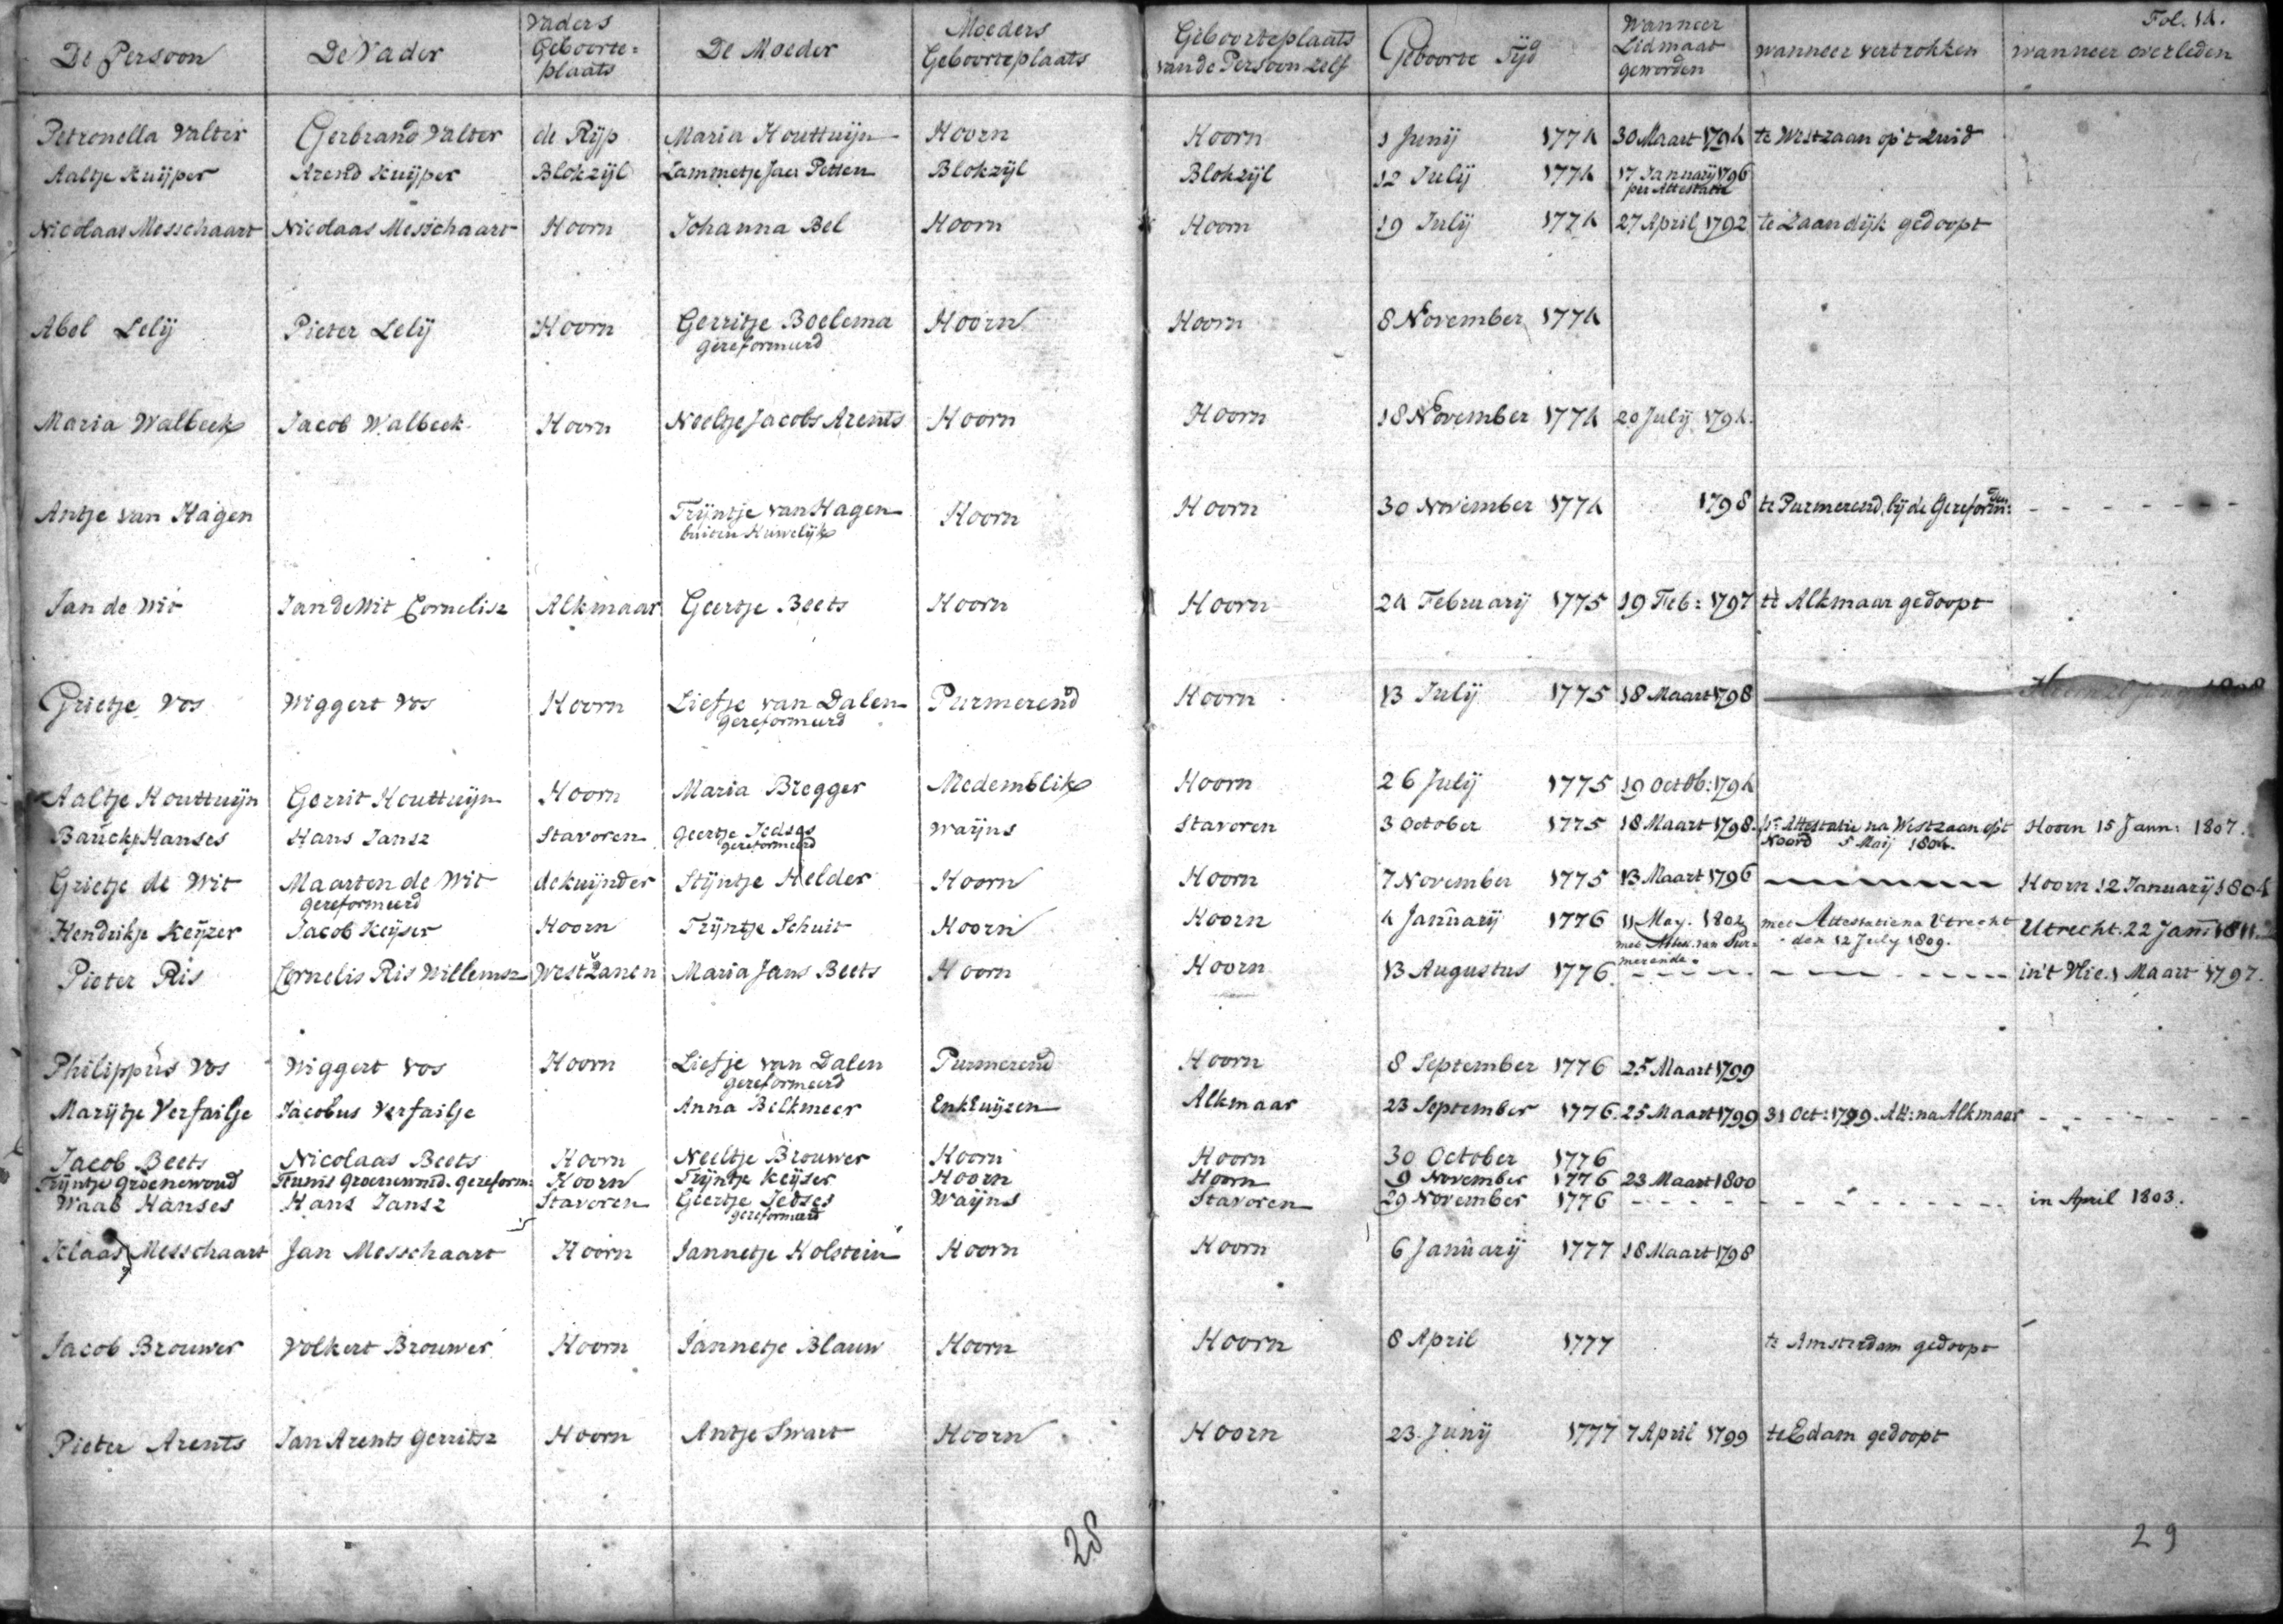 Fol. 14.
De Persoon De Vader Vaders Geboorte= plaats De Moeder Moeders Geboorteplaats Geboorteplaats van de Persoon zelf Geboorte Tijd Wanneer Lidmaat geworden wanneer vertrokken wanneer overleden
Petronella Valter Gerbrand Valter de Rijp Maria Houttuijn Hoorn Hoorn 1 Junij 1774 30 Maart 1794 te Westzaan op 't Zuid
Aaltje Kuijper Arend Kuijper Blokzijl Lammetje Jaer Petten Blokzijl Blokzijl 12 Julij 1774 17 Januarij 1796
per Attestatie
Nicolaas Messchaart Nicolaas Messchaart Hoorn Johanna Bel Hoorn Hoorn 19 Julij 1774 27 April 1792 te Zaandijk gedoopt
Abel Lelij Pieter Lelij Hoorn Gerritje Boelema Hoorn Hoorn 8 November 1774
gereformeerd
Maria Walbeek Jacob Walbeek Hoorn Neeltje Jacobs Arents Hoorn Hoorn 18 November 1774 20 Julij 1794.
Antje van Hagen Trijntje van Hagen Hoorn Hoorn 30 November 1774 1798 te Purmerend, bij de Gereform:den
buiten Huwelijk
Jan de Wit Jan de Wit Cornelisz Alkmaar Geertje Beets Hoorn Hoorn 24 Februarij 1775 19 Feb: 1797 te Alkmaar gedoopt
Grietje Vos Wiggert Vos Hoorn Liefje van Dalen Purmerend Hoorn 13 Julij 1775 18 Maart 1798
gereformeerd
Aaltje Houttuijn Gerrit Houttuijn Hoorn Maria Bregger Medemblik Hoorn 26 Julij 1775 19 Octob: 1794
Bauckje Hanses Hans Jansz Stavoren Geertje Jedses Waijns Stavoren 3 October 1775 18 Maart 1798. Attestatie na Westzaan op 't Hoorn 15 Jann: 1807.
gereformeerd Noord 5 Maij 1804.
Grietje de Wit Maarten de Wit de kuijnder Stijntje Helder Hoorn Hoorn 7 November 1775 13 Maart 1796 Hoorn 12 Januarij 1804
gereformeerd
Hendrikje Keijzer Jacob Keijser Hoorn Trijntje Schuit Hoorn Hoorn 4 Januarij 1776 11 May. 1802 met Attestatie na Utrecht Utrecht. 22 Jann: 1811.
met Attest. van Pur= den 12 July 1809.
merende.
Pieter Ris Cornelis Ris Willemsz Westzanen Maria Jans Beets Hoorn Hoorn 13 Augustus 1776. in 't Vlie. 1 Maart 1797.
Philippus Vos Wiggert Vos Hoorn Liefje van Dalen Purmerend Hoorn 8 September 1776 25 Maart 1799
gereformeerd
Marijtje Verfailje Jacobus Verfailje Anna Belkmeer Enkhuijzen Alkmaar 23 September 1776. 25 Maart 1799 31 Oct: 1799. Att: na Alkmaar
Jacob Beets Nicolaas Beets Hoorn Neeltje Brouwer Hoorn Hoorn 30 October 1776
Trijntje Groenewoud Teunis Groenewoud. gereform: Hoorn Trijntje Keijser Hoorn Hoorn 9 November 1776 23 Maart 1800
Waab Hanses Hans Jansz Stavoren Geertje Jedses Waijns Stavoren 29 November 1776 in April 1803.
gereformeerd
Klaas Messchaart Jan Messchaart Hoorn Jannetje Holstein Hoorn Hoorn 6 Januarij 1777 18 Maart 1798
Jacob Brouwer Volkert Brouwer Hoorn Jannetje Blauw Hoorn Hoorn 8 April 1777 te Amsterdam gedoopt
Pieter Arents Jan Arents Gerritsz Hoorn Antje Swart Hoorn Hoorn 23. Junij 1777 7 April 1799 te Edam gedoopt
28
29